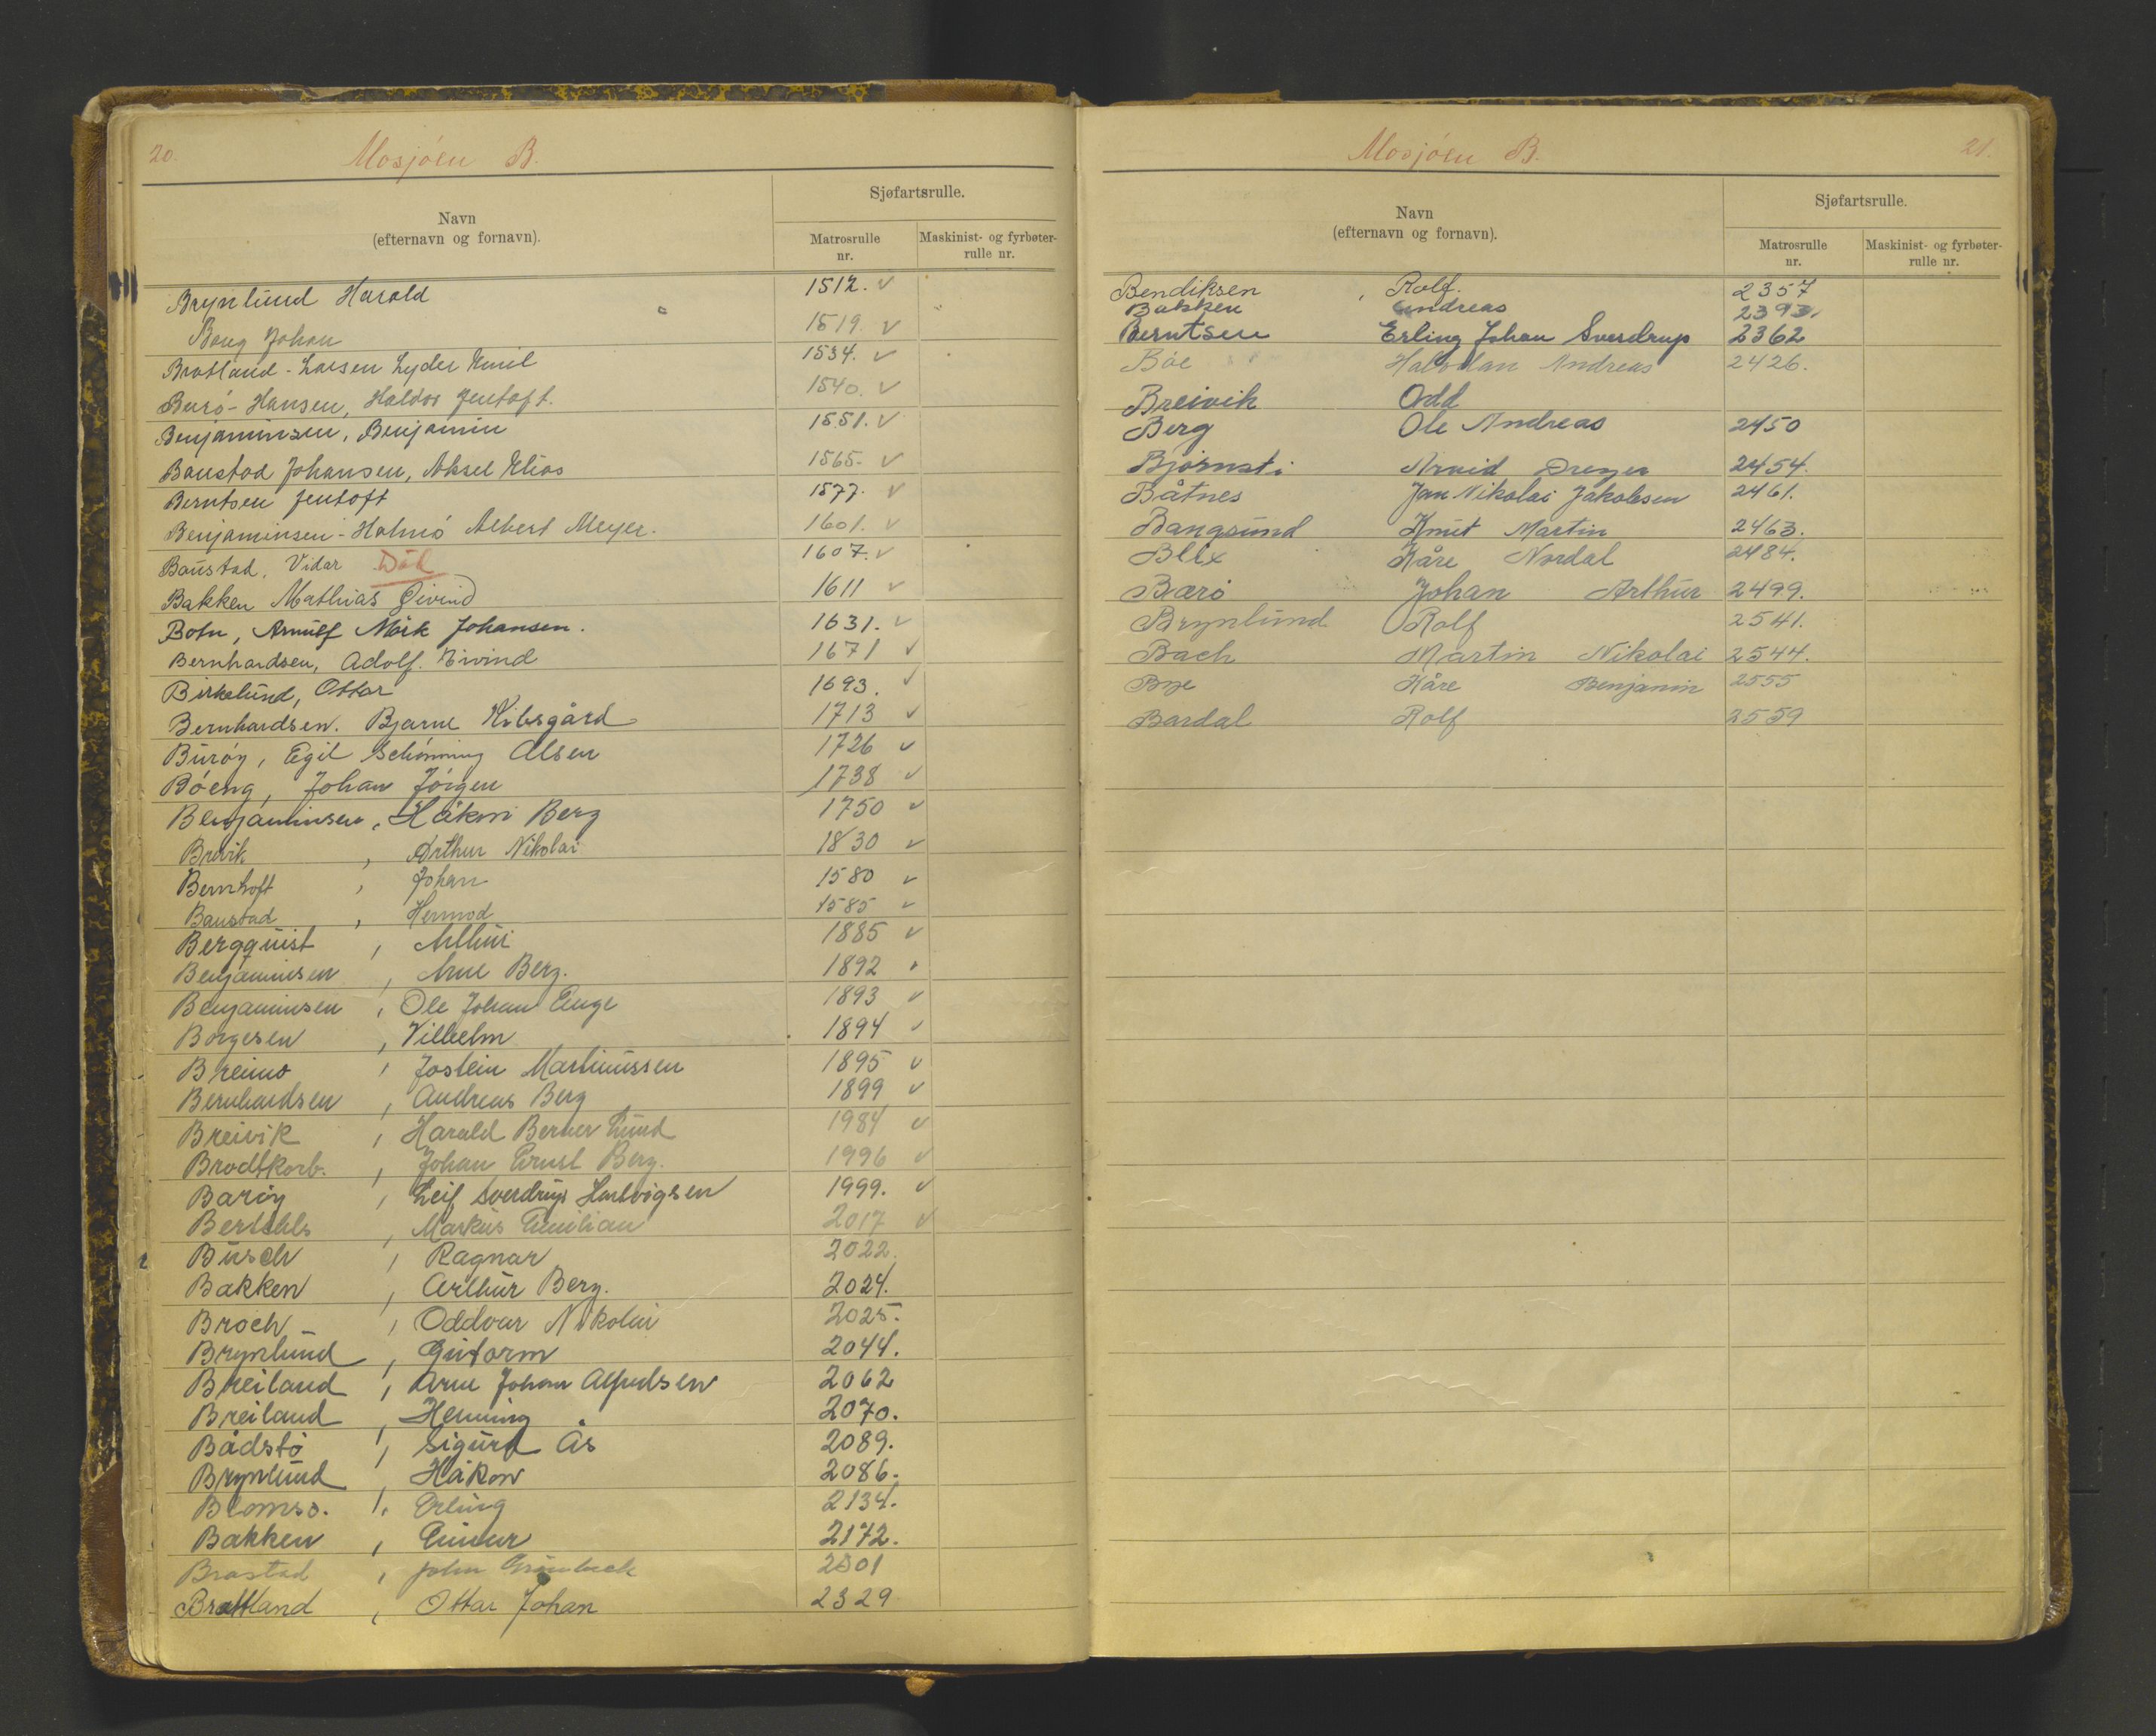 20.
Mosjóen B.
Navn
(efternavn og fornavn).
Sjøfartsrulle.
Matrosrulle
nr.
Maskinist- og fyrbøter-
rulle nr.
Brynlund Harald 1512. ✓
Johan 1519. ✓
Bratland-Larsen Lyder Emil 1534. ✓
Buró-Hansen, Haldor Jentoft. 1540. ✓
Benjaminsen, Benjamin 1551. ✓
Baustad Johansen, Aksel Elias 1565. ✓
Berntsen Jentoft 1577. ✓
Benjaminsen-Holmó Albert Meyer. 1601. ✓
Baustad, Vidar Död 1607. ✓
Bakken Mathias Øivind 1611 ✓
Botn, Arnulf Mörk Johansen. 1631. ✓
Bernhardsen, Adolf. Eivind 1671 ✓
Birkelund, Ottar 1693. ✓
Bernhardsen. Bjarne Kibsgård 1713 ✓
Buróy, Egil Schönning Olsen 1726 ✓
Bóeng, Johan Jórgen 1738 ✓
Benjaminsen, Håkon Berg 1750 ✓
Brevik, Arthur Nikolai 1830 ✓
Bernhoft, Johan 1580 ✓
Baustad, Hermod 1585 ✓
Bergquist, Arthur 1885 ✓
Benjaminsen, Arne Berg. 1892
Benjaminsen, Ole Johan Enge 1893 ✓
Borgesen, Vilhelm 1894 ✓
Breimo, Jostein Martinussen 1895 ✓
Bernhardsen, Andreas Berg 1899 ✓
Breivik, Harald Berner Lund 1984 ✓
Brodtkorb., Johan Ernst Berg. 1996 ✓
Baróy, Leif Sverdrup Hartvigsen 1999. ✓
Markus Emilian 2017 ✓
Busch, Ragnar 2022.
Bakken, Arthur Berg. 2024.
Broch, Oddvar Nikolai 2025.
Brynlund, Gutorm 2044.
Breiland, Arne Johan Alfredsen 2062
Breiland, Henning 2070.
Bådstó, Sigurd Ås 2089.
Brynlund, Håkon 2086.
Blomsó., Erling 2134.
Bakken, Einar 2172.
Brastad, John Grønbeck 2301
Brattland, Ottar Johan 2329
Mosjóen B.
21.
Navn
(efternavn og fornavn).
Sjøfartsrulle.
Matrosrulle
nr.
Maskinist- og fyrbøter-
rulle nr.
Bendiksen, Rolf. 2357
Bakken Andreas 2393.
Berntsen Erling Johan Sverdrup 2362
Bóe Halvdan Andreas 2426.
Breivik Odd
Berg Ole Andreas 2450
Bjórnsti Arvid Dreyer 2454.
Båtnes Jan Nikolai Jakobsen 2461.
Bangsund Knut Martin 2463.
Blix Kåre Nordal 2484.
Bæró Johan Arthur 2499.
Brynlund Rolf 2541.
Bach Martin Nikolai 2544.
Bye Kåre Benjamin 2555
Bardal Rolf 2559